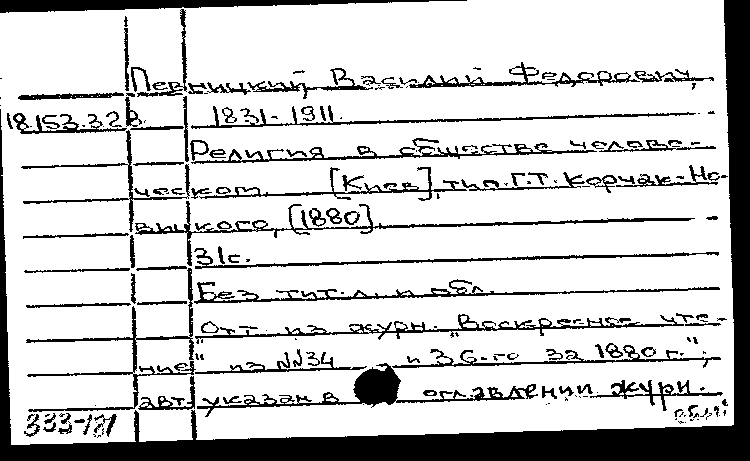 Певницкий, Василий Федорович,
18153.328 1831-1911.
Религия в обществе челове-
ческом. [Киев], тип. Г.Т. Корчак-Но-
вицкого, [1880].
31с.
Без тит. л. и обл.
"Отт. из журн. "Воскресное чте-
ние" из №№34 и 36-го за 1880 г.";
авт. указан в оглавлении журн.
333-131